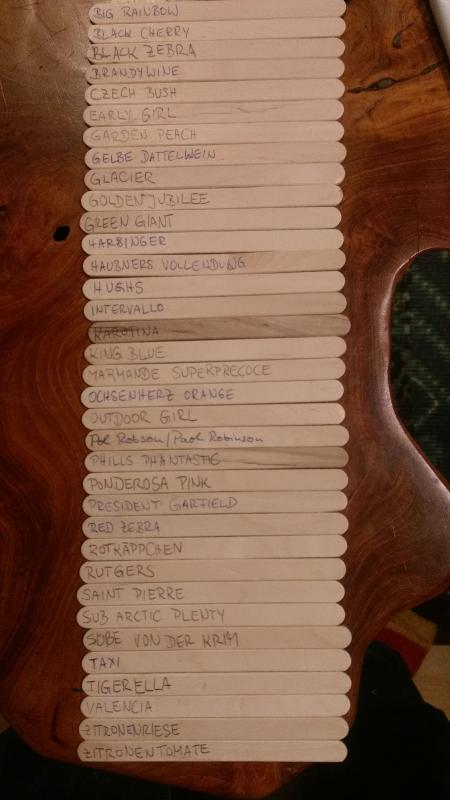 BIG RAINBOW
BLACK CHERRY
BLACK ZEBRA
BRANDYWINE
CZECH BUSH
EARLY GIRL
GARDEN PEACH
GELBE DATTELWEIN
GLACIER
GOLDEN JUBILEE
GREEN GIANT
HARBINGER
HAUBNERS VOLLENDUNG
HUGHS
INTERVALLO
KAROTINA
KING BLUE
MARMANDE SUPERPRECOCE
OCHSENHERZ ORANGE
OUTDOOR GIRL
Pol Robson/Paol Robinson
PHILLS PHANTASTIC
PONDEROSA PINK
PRESIDENT GARFIELD
RED ZEBRA
ROTKÄPPCHEN
RUTGERS
SAINT PIERRE
SUB ARCTIC PLENTY
SÜßE VON DER KRIM
TAXI
TIGERELLA
VALENCIA
ZITRONENRIESE
ZITRONENTOMATE